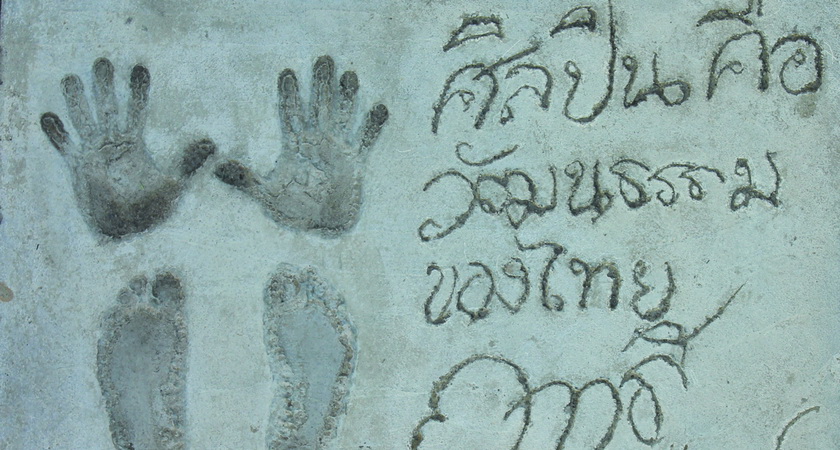 ศิลปินคือ
วัฒนธรรม
ของไทย